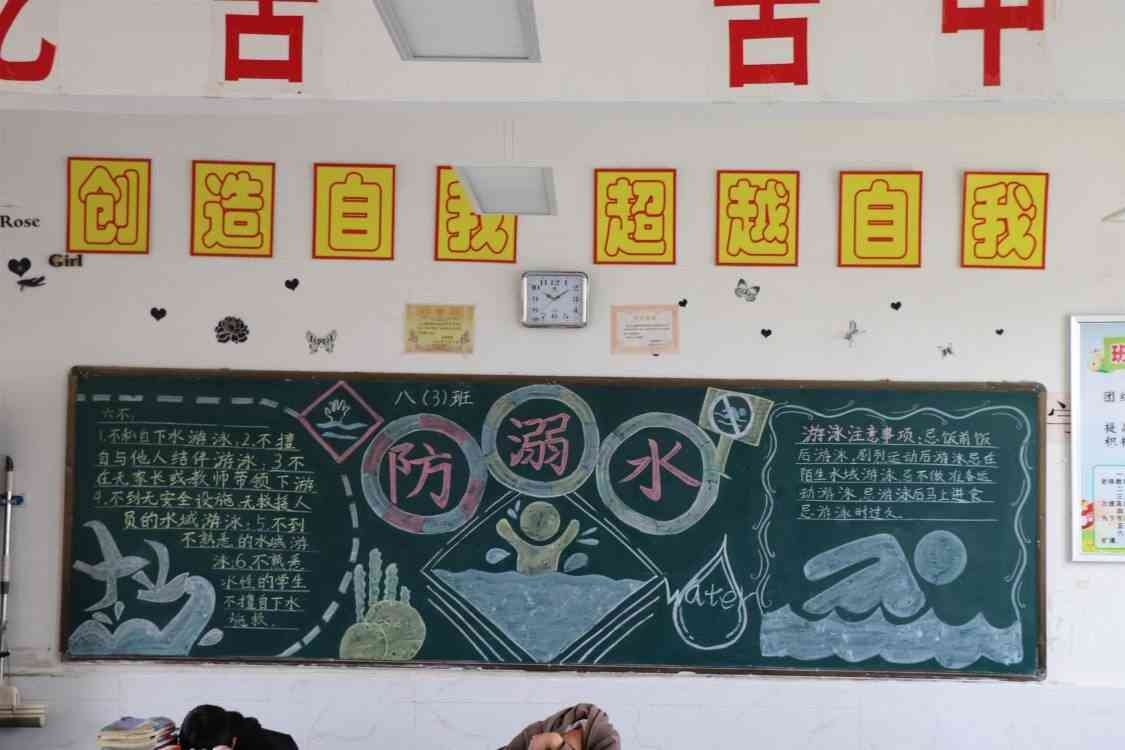 忆 苦 苦 甲
创造自我 超越自我
Rose
Girl
八(3)班
防溺水
六不:
1.不私自下水游泳;2.不擅
自与他人结伴游泳;3.不
在无家长或教师带领下游
4.不到无安全设施、无救援人
员的水域游泳;5.不到
不熟悉的水域游
泳;6.不熟悉
水性的学生
不擅自下水
施救.
Water
游泳注意事项:忌饭前饭
后游泳,剧烈运动后游泳忌在
陌生水域游泳忌不做准备运
动游泳忌游泳后马上进食
忌游泳时过久
班
团结
提高
积极